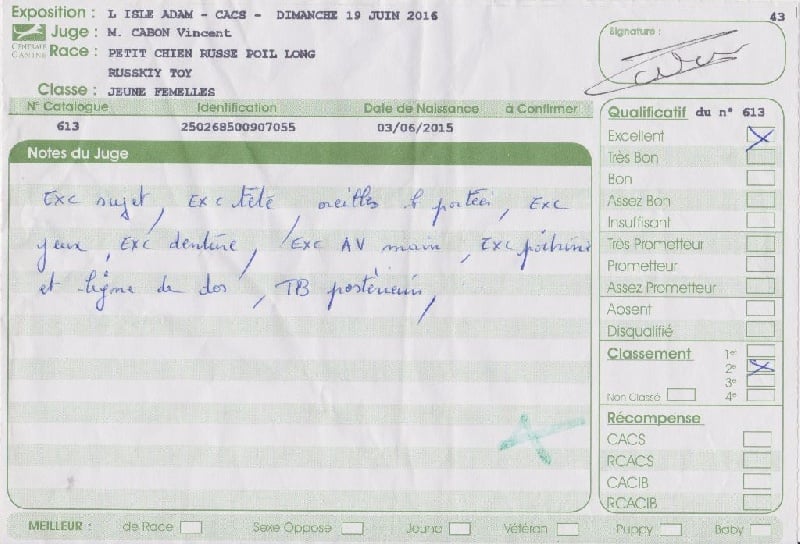 Exposition : L ISLE ADAM - CACS - DIMANCHE 19 JUIN 2016
43
Juge : M. CABON Vincent
CENTRALE CANINE
Race : PETIT CHIEN RUSSE POIL LONG
RUSSKIY TOY
Classe : JEUNE FEMELLES
Signature :
N° Catalogue Identification Date de Naissance à Confirmer
613 250268500907055 03/06/2015
Notes du Juge
Exc sujet, Exc tête, oreilles b portées, Exc
yeux, Exc denture, Exc AV main, Exc poitrine
et ligne de dos, TB postérieurs,
Qualificatif du n° 613
Excellent
Très Bon
Bon
Assez Bon
Insuffisant
Très Prometteur
Prometteur
Assez Prometteur
Absent
Disqualifié
Classement 1er
2e
3e
Non Classé 4e
Récompense
CACS
RCACS
CACIB
RCACIB
MEILLEUR : de Race Sexe Opposé Jeune Vétéran Puppy Baby